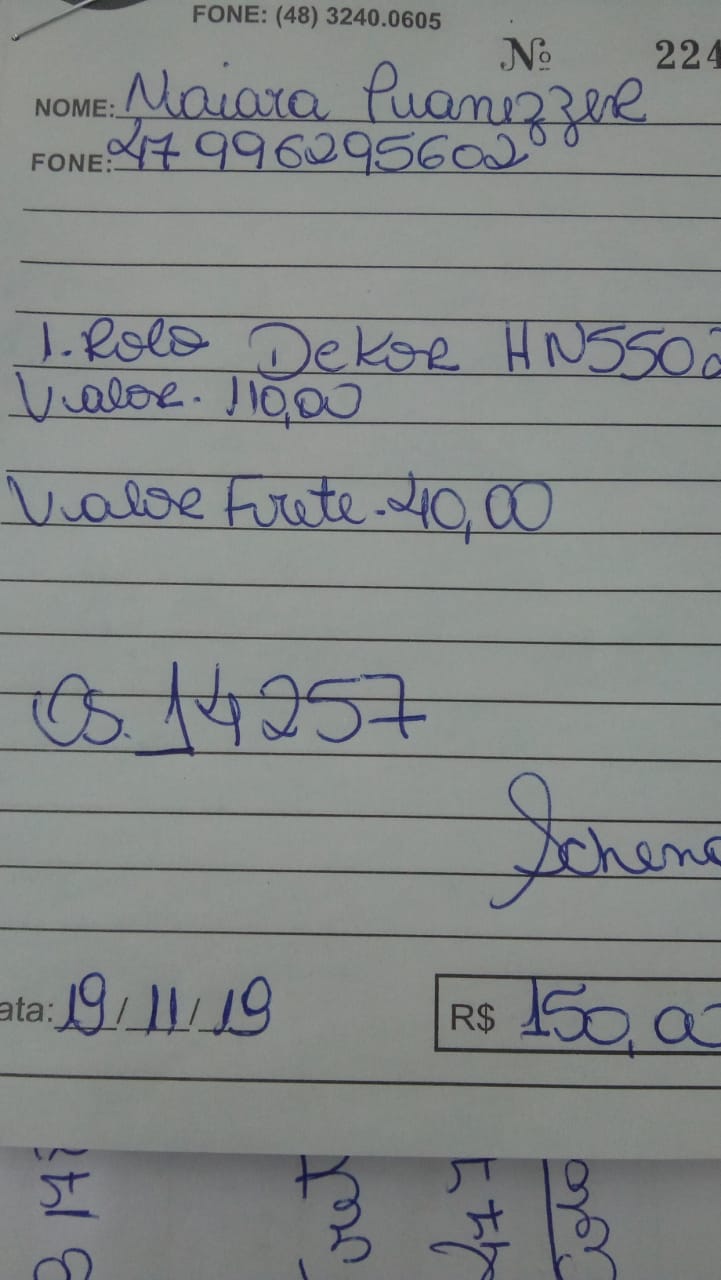 FONE: (48) 3240.0605
Nº 224
NOME: Maiara
FONE: 47 996295602
1. Rolo Dekor HN5502
Valor. 110,00
Valor Frete - 40,00
Os. 14257
Schen
ata: 19/11/19
R$ 150,00